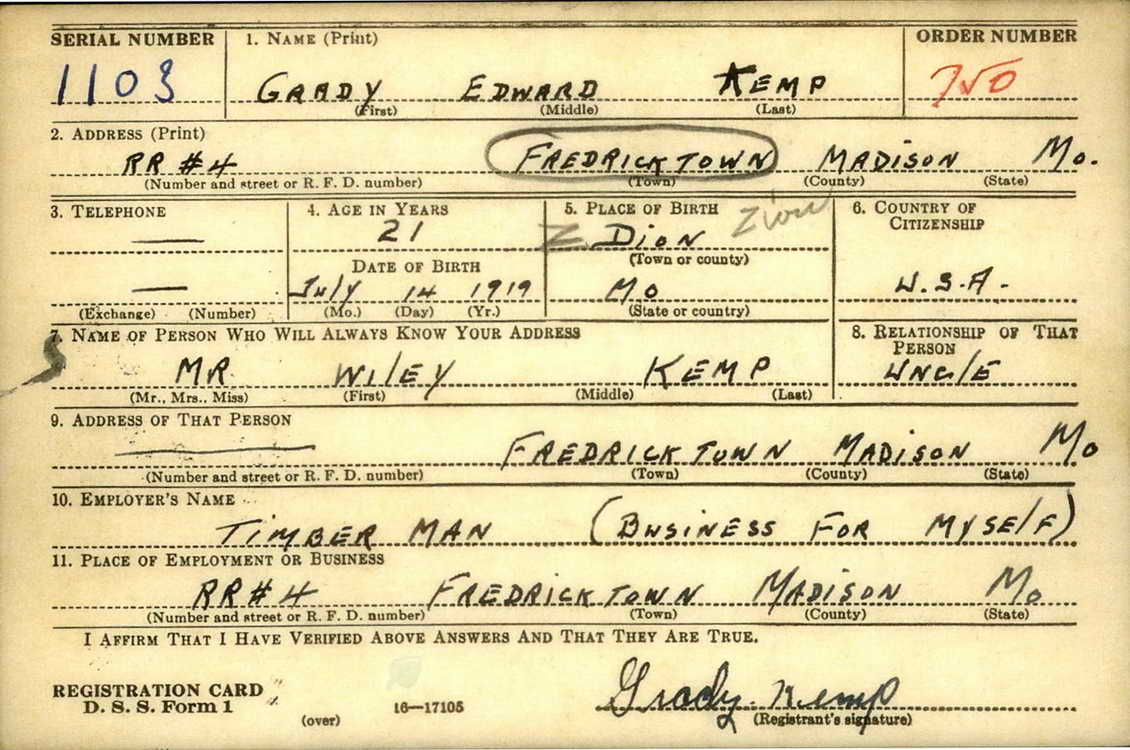 SERIAL NUMBER 1. NAME (Print) ORDER NUMBER
1103 GRADY EDWARD KEMP 750
(First) (Middle) (Last)
2. ADDRESS (Print)
RR #4 FREDRICKTOWN MADISON Mo.
(Number and street or R. F. D. number) (Town) (County) (State)
3. TELEPHONE 4. AGE IN YEARS 5. PLACE OF BIRTH 6. COUNTRY OF CITIZENSHIP
— 21 Z DION Zion
(Town or county)
DATE OF BIRTH
— July 14 1919 Mo U.S.A.
(Exchange) (Number) (Mo.) (Day) (Yr.) (State or country)
7. NAME OF PERSON WHO WILL ALWAYS KNOW YOUR ADDRESS 8. RELATIONSHIP OF THAT PERSON
MR WILEY KEMP UNCLE
(Mr., Mrs.. Miss) (First) (Middle) (Last)
9. ADDRESS OF THAT PERSON
— FREDRICKTOWN MADISON Mo
(Number and street or R. F. D. number) (Town) (County) (State)
10. EMPLOYER'S NAME
TIMBER MAN (BUSINESS FOR MYSELF)
11. PLACE OF EMPLOYMENT OR BUSINESS
RR#4 FREDRICKTOWN MADISON Mo
(Number and street or R. F. D. number) (Town) (County) (State)
I AFFIRM THAT I HAVE VERIFIED ABOVE ANSWERS AND THAT THEY ARE TRUE.
REGISTRATION CARD
D. S. S. Form 1 16—17105 Grady Kemp
(over) (Registrant's signature)